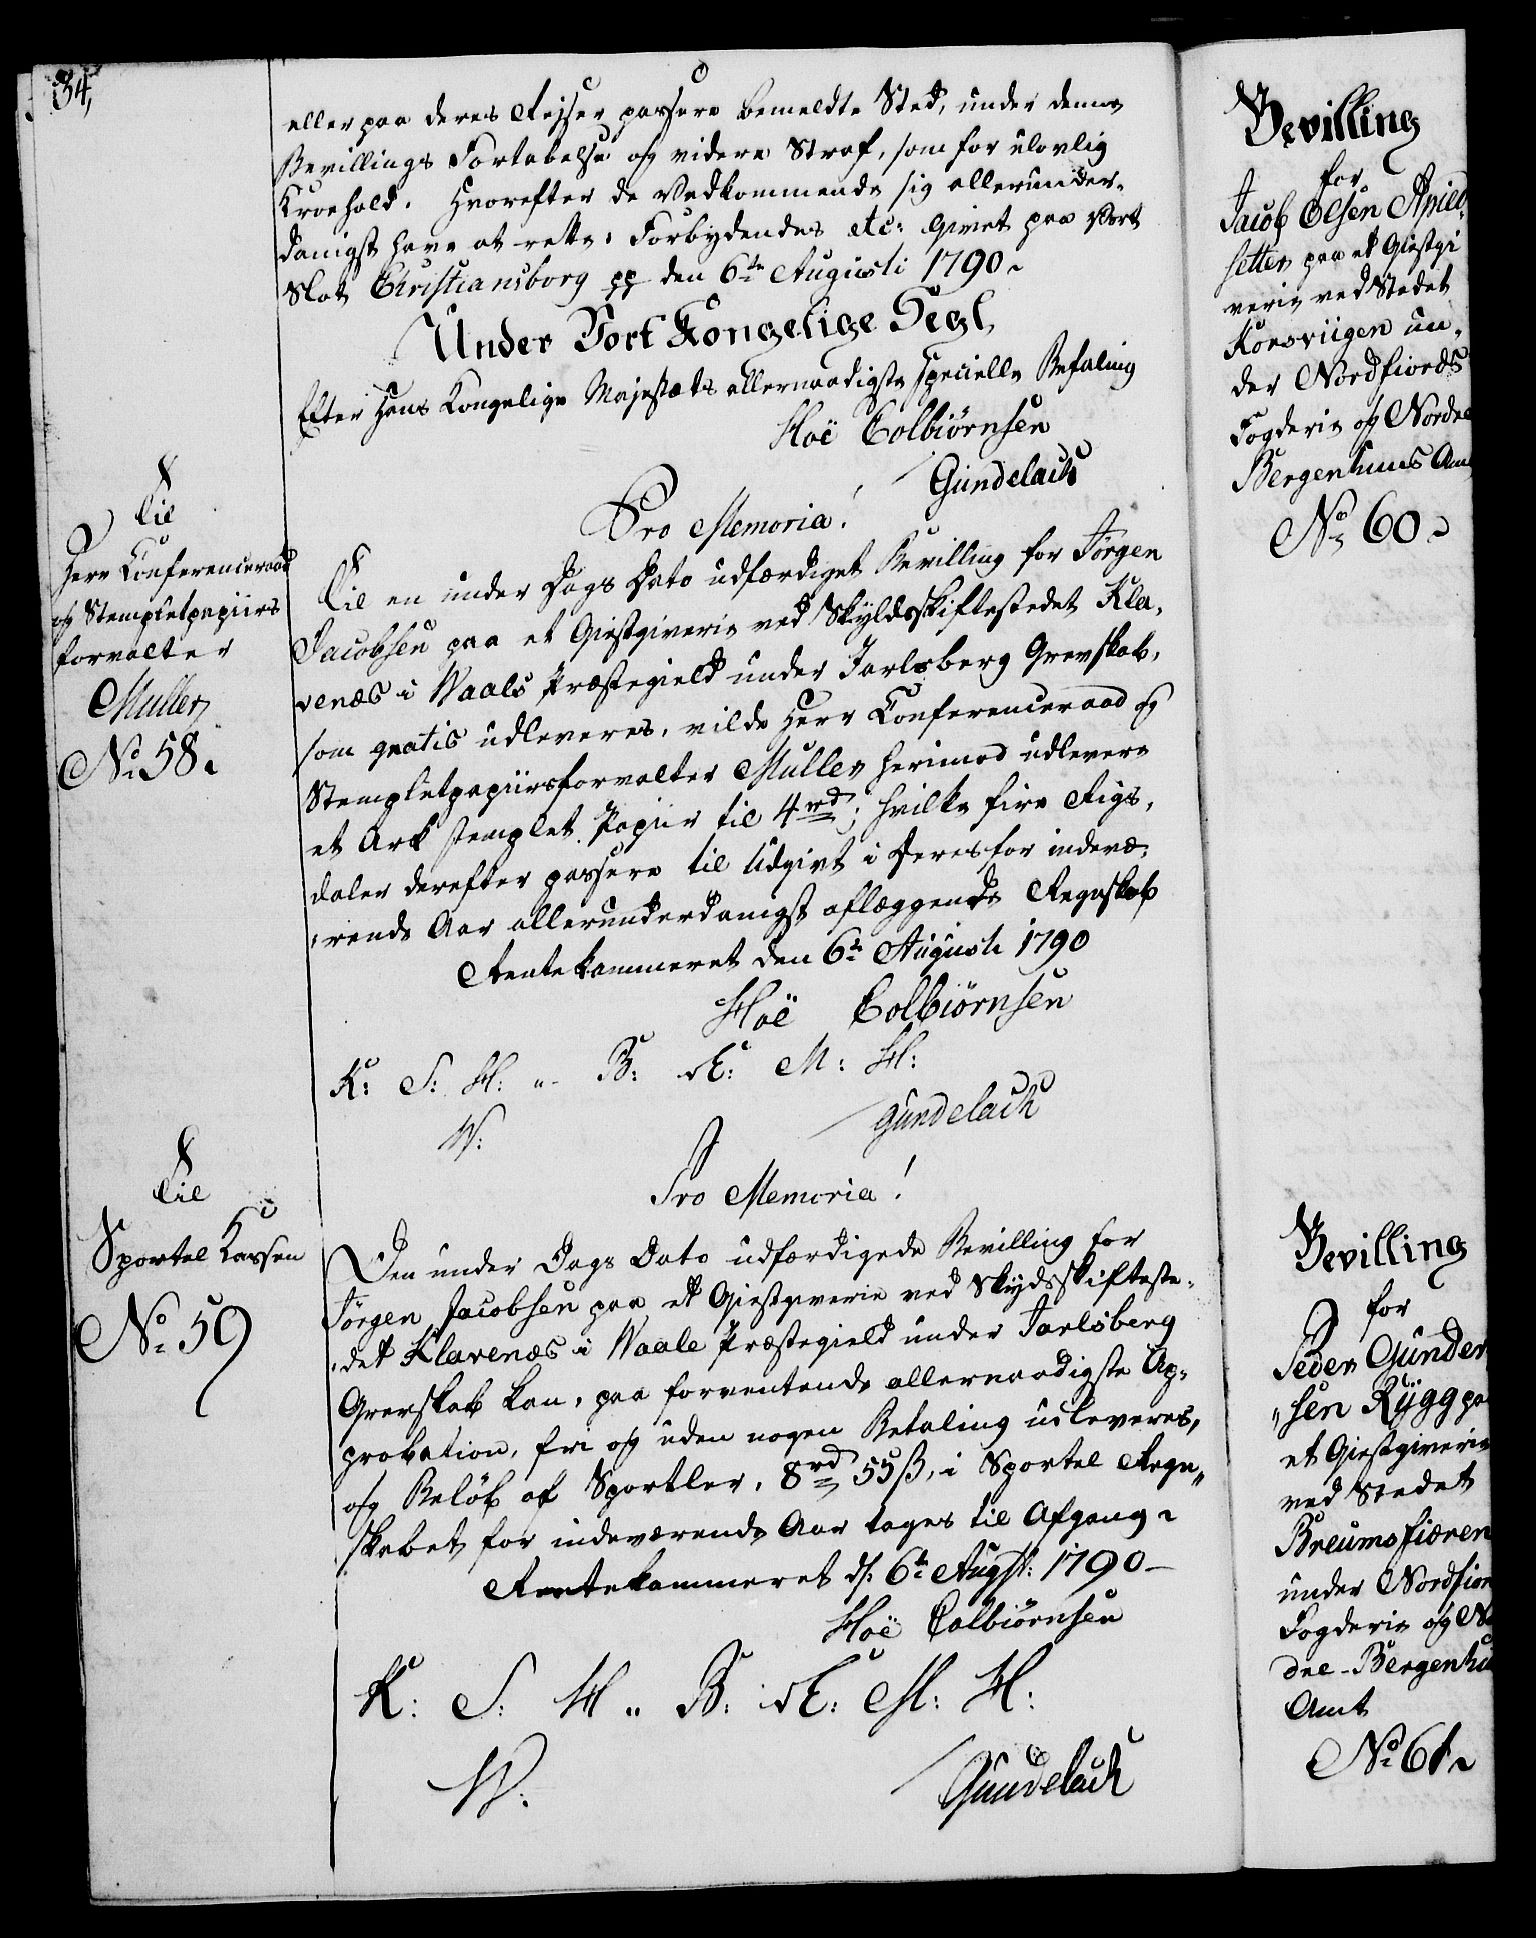 34,
eller paa deres Rejser passere bemeldte Sted, under denne
Bevillings Fortabelse og videre Straf, som for ulovlig
Kroehold. Hvorefter de Vedkommende sig allerunder-
danigst have at rette. Forbydendes etc: Givet paa Vort
Slot Christiansborg pp den 6te Augusti 1790
Under Vort Kongelige Segl,
Efter Hans Kongelige Majestæts allernaadigste specielle Befaling
Hoë Colbiørnsen
Gundelach
Til
Herr Conferenceraad
og Stempletpapiirs
forvalter
Muller,
No 58.
Pro Memoria!
Til en under Dags Dato udfærdiget Bevilling for Jörgen
Jacobsen paa et Giestgiverie ved Skyldsskiftestedet Kla,
venæs i Waale Præstegield under Jarlsberg Grevskab,
som gratis udleveres, vilde Herr Conferenceraad og
Stempletpapiirsforvalter Muller herimod udlevere
et Ark stemplet Papiir til 4 rd; hvilke fire Rigs,
daler derefter passere til Udgivt i Deres for indevæ-
,rende Aar allerunderdanigst aflæggende Regnskab
Rentekammeret den 6te Augusti 1790
Hoë Colbiörnsen
K: S: H: „ B: E: M: H:
W:
Gundelach
Til
Sportel Kassen
No 59
Pro Memoria!
Den under Dags Dato udfærdigede Bevilling for
Jörgen Jacobsen paa et Giestgiverie ved Skydsskifteste-
,det Klavenæs i Waale Præstegield under Jarlsberg
Grevskab kan, paa forventende allernaadigste Ap-
probation, fri og uden nogen Betaling udleveres,
og Beløb af Sportler, 8 rd 55 ß, i Sportel Regn„
skabet for indeværende Aar tages til Afgang
Rentekammeret d: 6te Augst: 1790
Hoë Colbiörnsen
K: S: H „ B: E: M: H:
W:
Gundelach
Bevilling
for
Jacob Olsen Apild,
setter paa et Giestgi
verie ved Stedet
Korsviigen un,
der Nordfiords
Fogderie og Nordre
Bergenhuus Amt
No 60
Bevilling
for
Peder Gunder
„sen Rÿgg pa
et Giestgiverie
ved Stedet
Breumsfiæren
under Nordfior
Fogderie og No
dre-Bergenhu
Amt
No 61